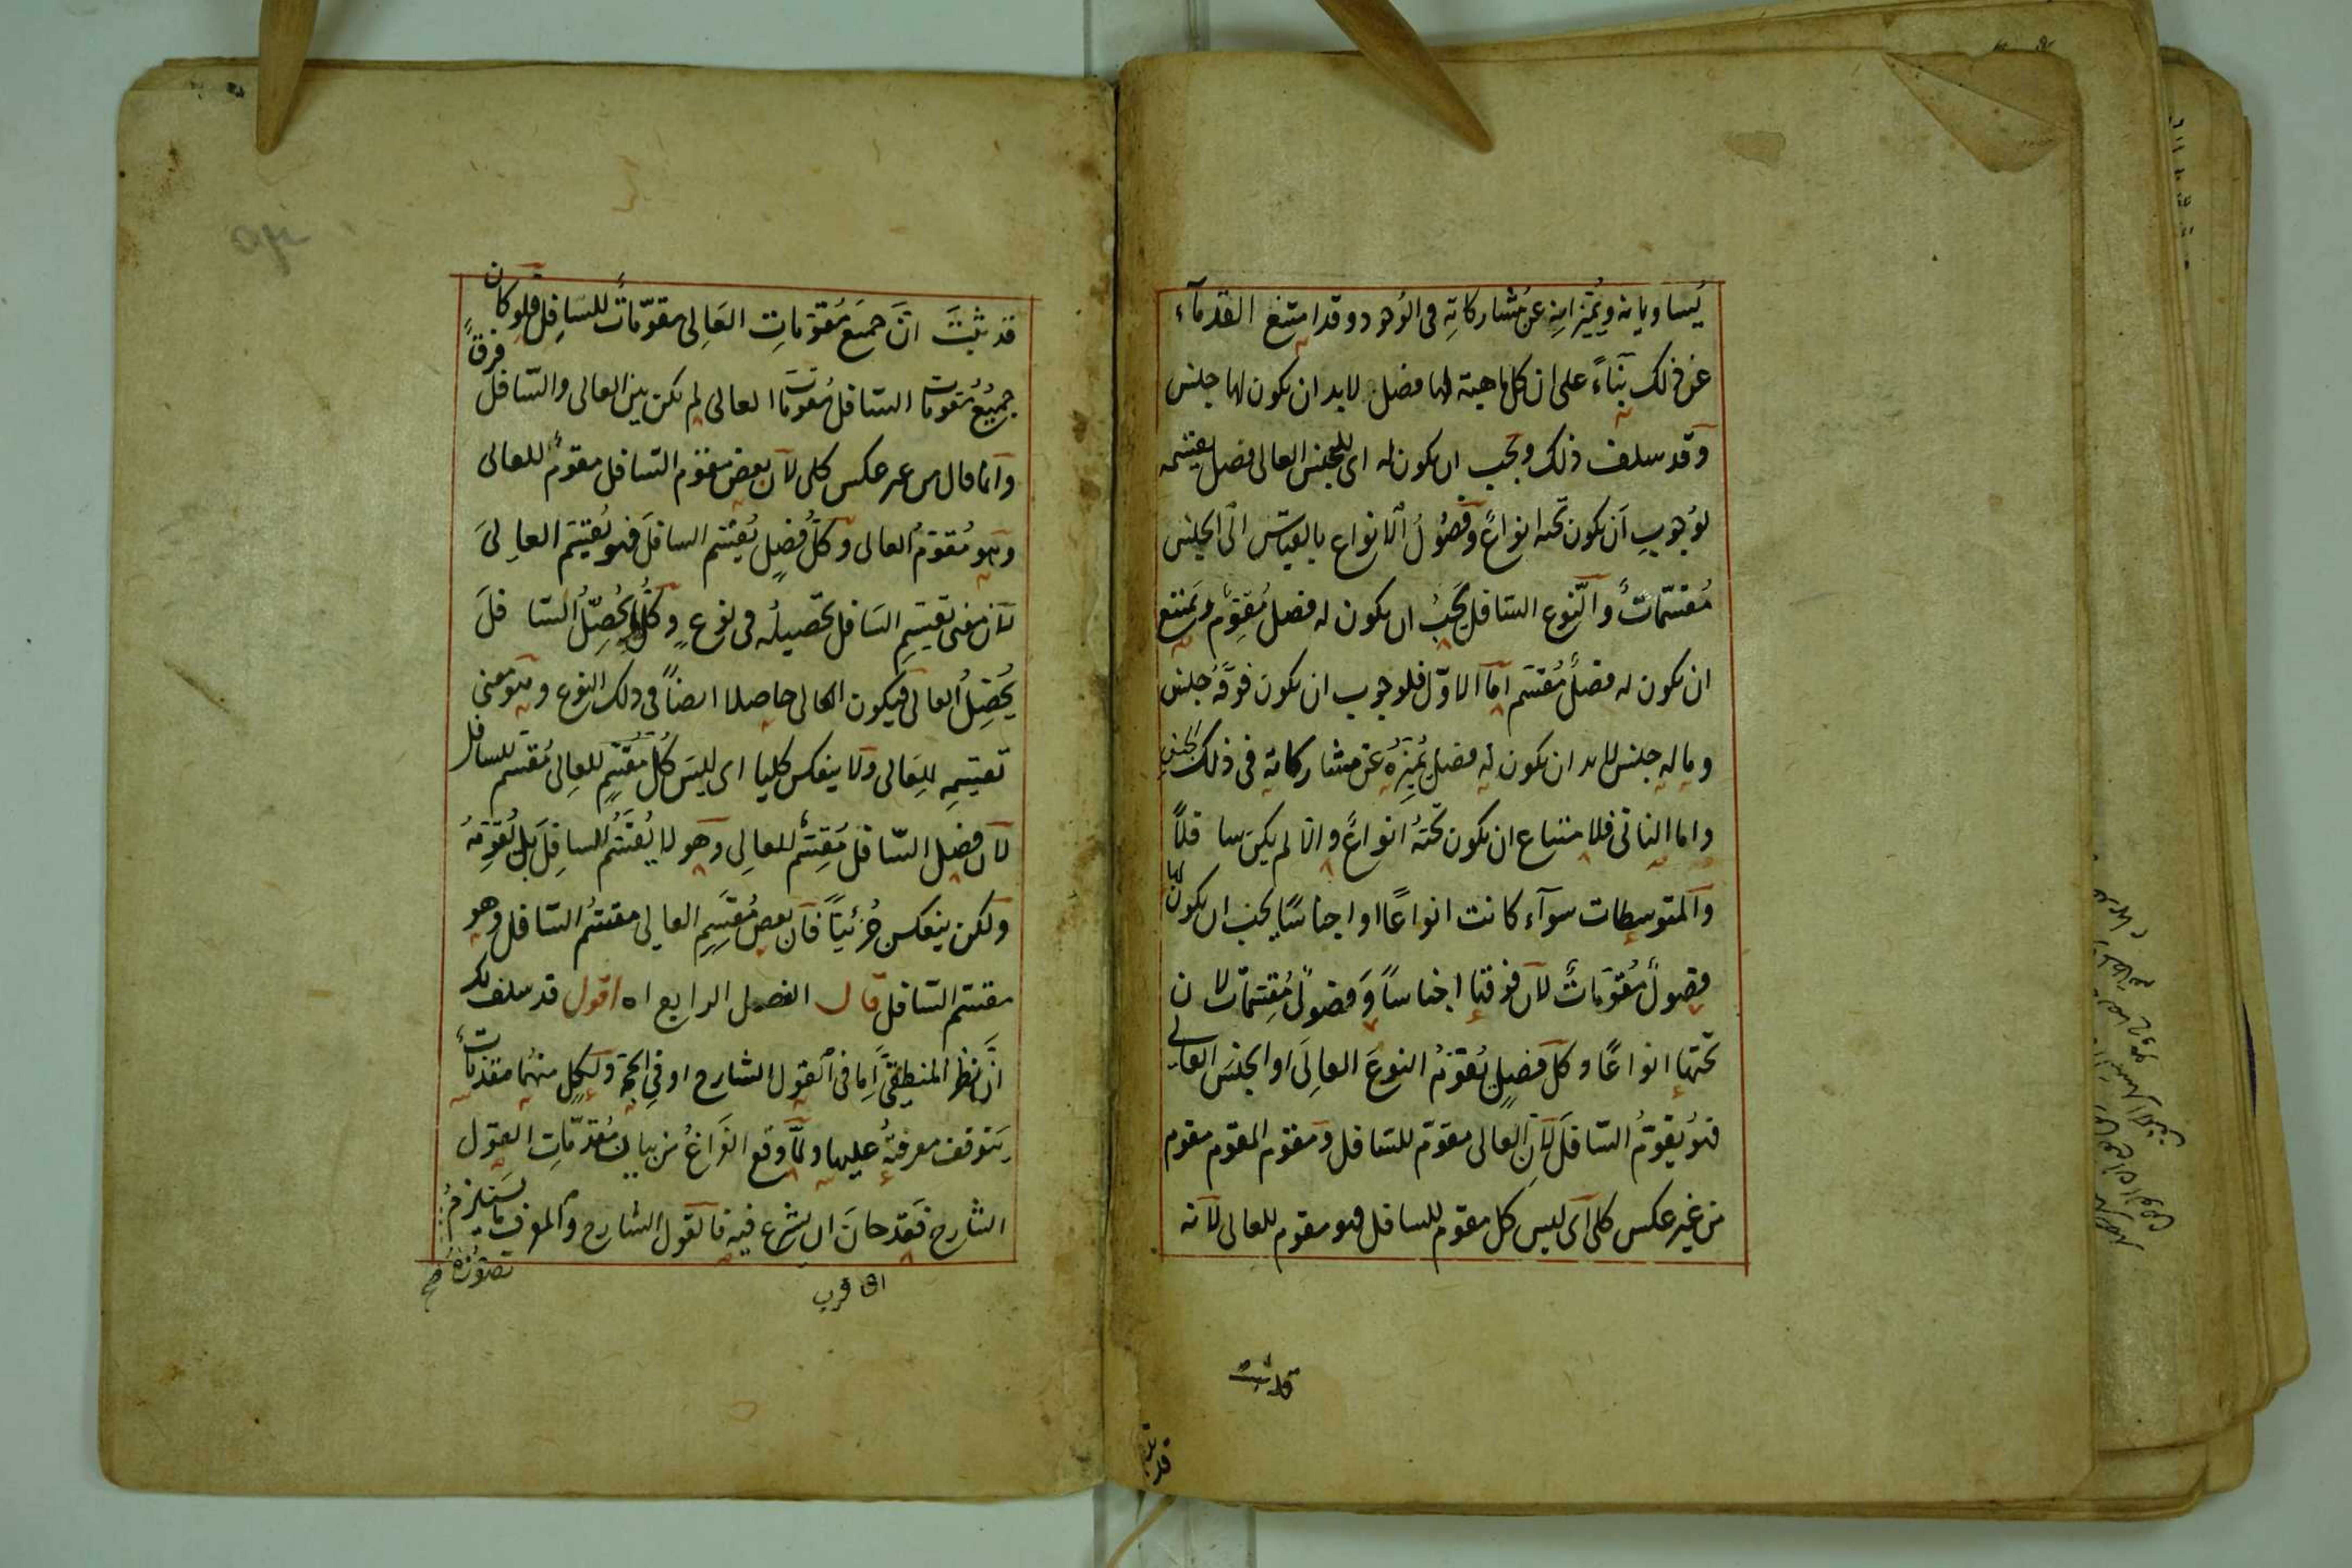 يُساويانه ويُميّزانِه عن مُشاركاتِه في الوُجود وقد امتنع القدمآء
عن ذلك بنآءً على ان كل ماهية لها فصل لا بد ان يكون لها جنس
وقد سلف ذلك ويجب ان يكون له اى للجنس العالى فصل يقسمه
لوُجوبِ اَن يكون تحته انواعٌ وفصُولُ الانواع بالقياس الى الجنس
مُقسّماتٌ والنّوع السّافل يَجبُ ان يكون له فصل مُقوِّم ويمتنع
ان يكون له فصلٌ مُقسّم امّا الاوّل فلوجوب ان يكون فوقَهُ جنس
وما له جنس لا بد ان يكون له فصل يُميّزهُ عن مشاركاته فى ذلك الجنس
واما الثانى فلامتناع ان يكون تحتهُ انواعٌ والّا لم يكن سافلًا
والمتوسطات سوآء كانت انواعًا او اجناسًا يجب ان يكون لها
فصولٌ مُقوّماتٌ لان فوقها اجناسًا وَفصولٌ مُقسّمات لان
تحتها انواعًا وكل فصلٍ يُقوّمُ النوعَ العالِىَ او الجنسَ العالى
فهوُ يقوّمُ السّافلَ لانّ العالى مقوّم للسّافل ومقوّم المقوّم مقوم
من غير عكس كلى اَى ليس كل مقوم للسافل فهو مقوم للعالى لانّه
قد ثبت
قد ثبتَ انّ جميعَ مُقوّماتِ العَالِى مقوّماتٌ للسَافِل فلو كان
جميعُ مُقومات السّافل مُقومات العالى لم يكن بين العالى والسّافل فرقٌ
وانما قال من غير عكس كلى لان بعض مقوّم السّافل مقومٌ للعالى
وهو مُقوّمُ العالى وكلُّ فصلٍ يُقسّم السافلَ فهو يُقسّمَ العالِىَ
لانّ معنى تقسيمِ السَافل تحصيلُه فى نوعٍ وكلّما يُحصِّلُ السّافلَ
يُحصّلُ العالى فيكون العالى حاصلا ايضاً فى ذلك النوع وهو معنى
تقسيمِه للعَالى ولا ينعكس كليا اى ليسَ كلّ مُقسّمٍ للعالِى مُقسّم للسافل
لان فصل السّافل مُقسّمٌ للعالى وهو لا يُقسّمُ السافِلَ بل يُقوّمهُ
ولكن ينعكس جُزئيّاً فان بعض مُقسّمِ العالى مقسّمُ السّافل وهو
مقسّم السّافل قال الفصل الرابع اه اقول قد سلف لك
انّ نظر المنطقىّ اِما فى القول الشارح او فى الحجّة ولكلٍ منهُما مقدّماتٌ
يتوقف معرفتهُ عليها ولمّا وقع الفَراغُ من بيان مُقدّماتِ القول
الشارح فقد حانَ ان يشرع فيه فالقول الشارح والمعرف ما يستلزمُ
تصوّرُهُ